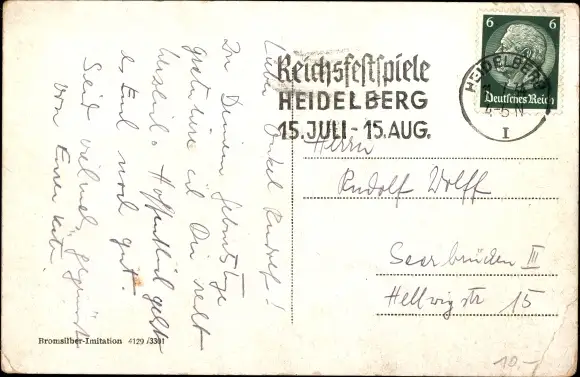 Lieber Onkel Rudolf!
Zu Deinem Geburtstage
gratuliere ich Dir recht
herzlich. Hoffentlich geht
es Euch noch gut.
Seid vielmals gegrüßt
von Eurer
Reichsfestspiele
HEIDELBERG
15.JULI - 15.AUG.
6 6
Deutsches Reich
HEIDELBERG
4-5 N
I
Herrn
Rudolf Wolff
Saarbrücken III
Hellwigstr 15
Bromsilber-Imitation 4129/3301
10,-